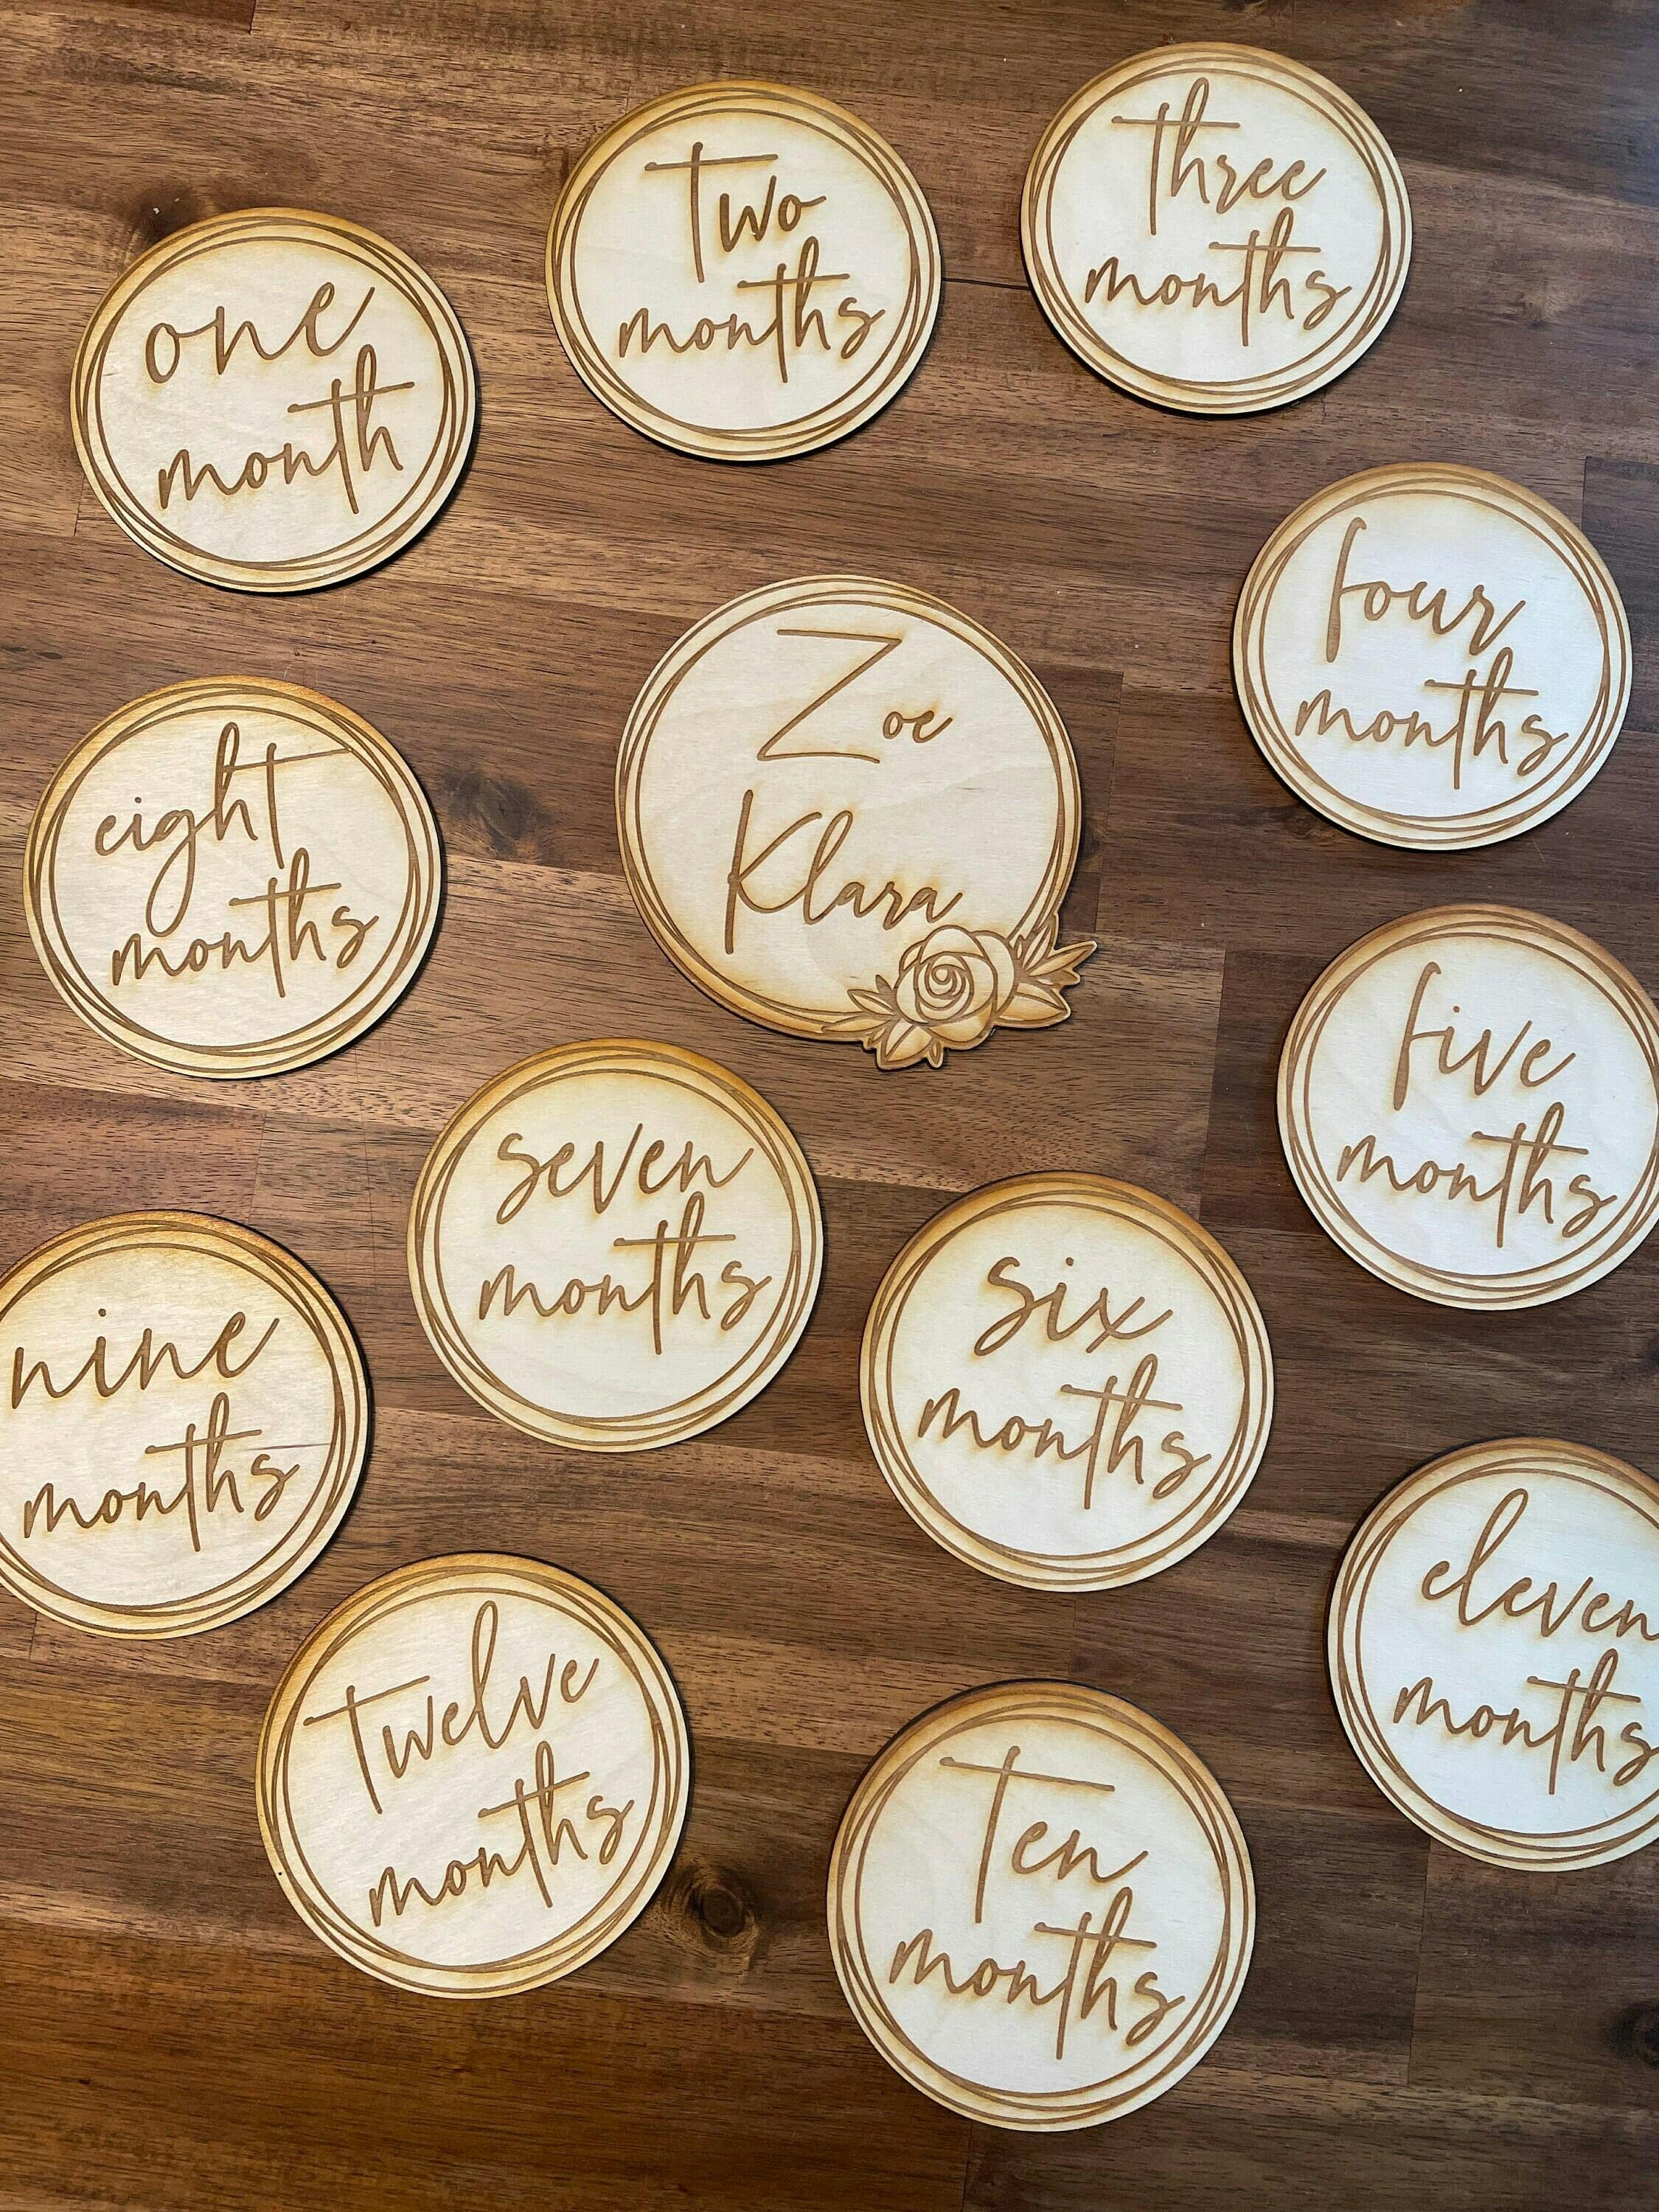 one
month
Two
months
three
months
four
months
Zoe
Klara
eight
months
five
months
seven
months
six
months
nine
months
eleven
months
Twelve
months
Ten
months